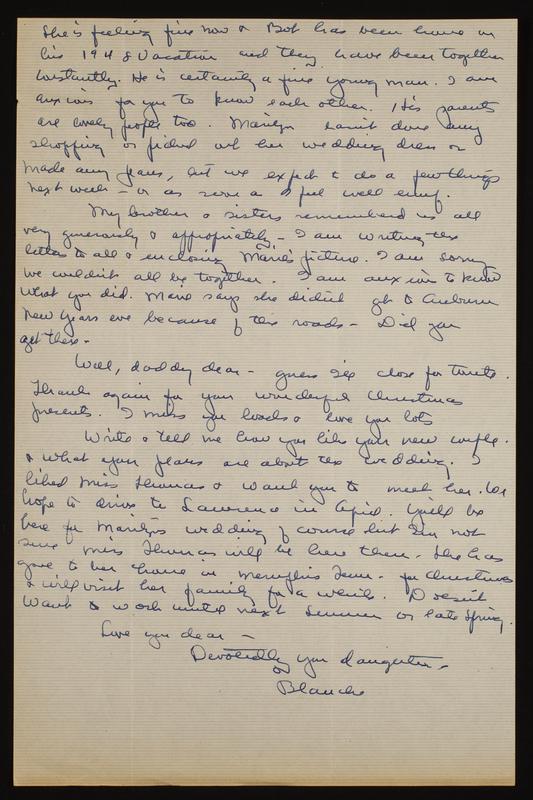 She's feeling fine now & Bob has been home on
his 1948 Vacation and they have been together
constantly. He is certainly a fine young man. I am
anxious for you to know each other. His parents
are lovely people too. Marilyn hasn't done any
shopping or picked out her wedding dress or
made any plans, but we expect to do a few things
next week - or as soon as I feel well enuf.
My brother & sisters remembered us all
very generously & appropriately - I am writing this
letter to all & enclosing Marie's picture. I am sorry
we couldn't all be together. I am anxious to know
what you did. Marie says she didn't get to Auburn
New Years eve because of the roads - Did you
get there -
Well, daddy dear - guess I'll close for tonite.
Thanks again for your wonderful Christmas
presents. I miss you loads & love you lots
Write & tell me how you like your new couple.
& what your plans are about the wedding. I
liked Miss Thomas & want you to meet her. We
hope to drive to Lawrence in April. You'll be
here for Marilyn's wedding of course but I'm not
sure Miss Thomas will be here then. She has
gone to her home in Memphis Tenn - for Christmas
& will visit her family for a while. Doesn't
want to work until next summer or late spring.
Love you dear -
Devotedly your daughter -
Blanche